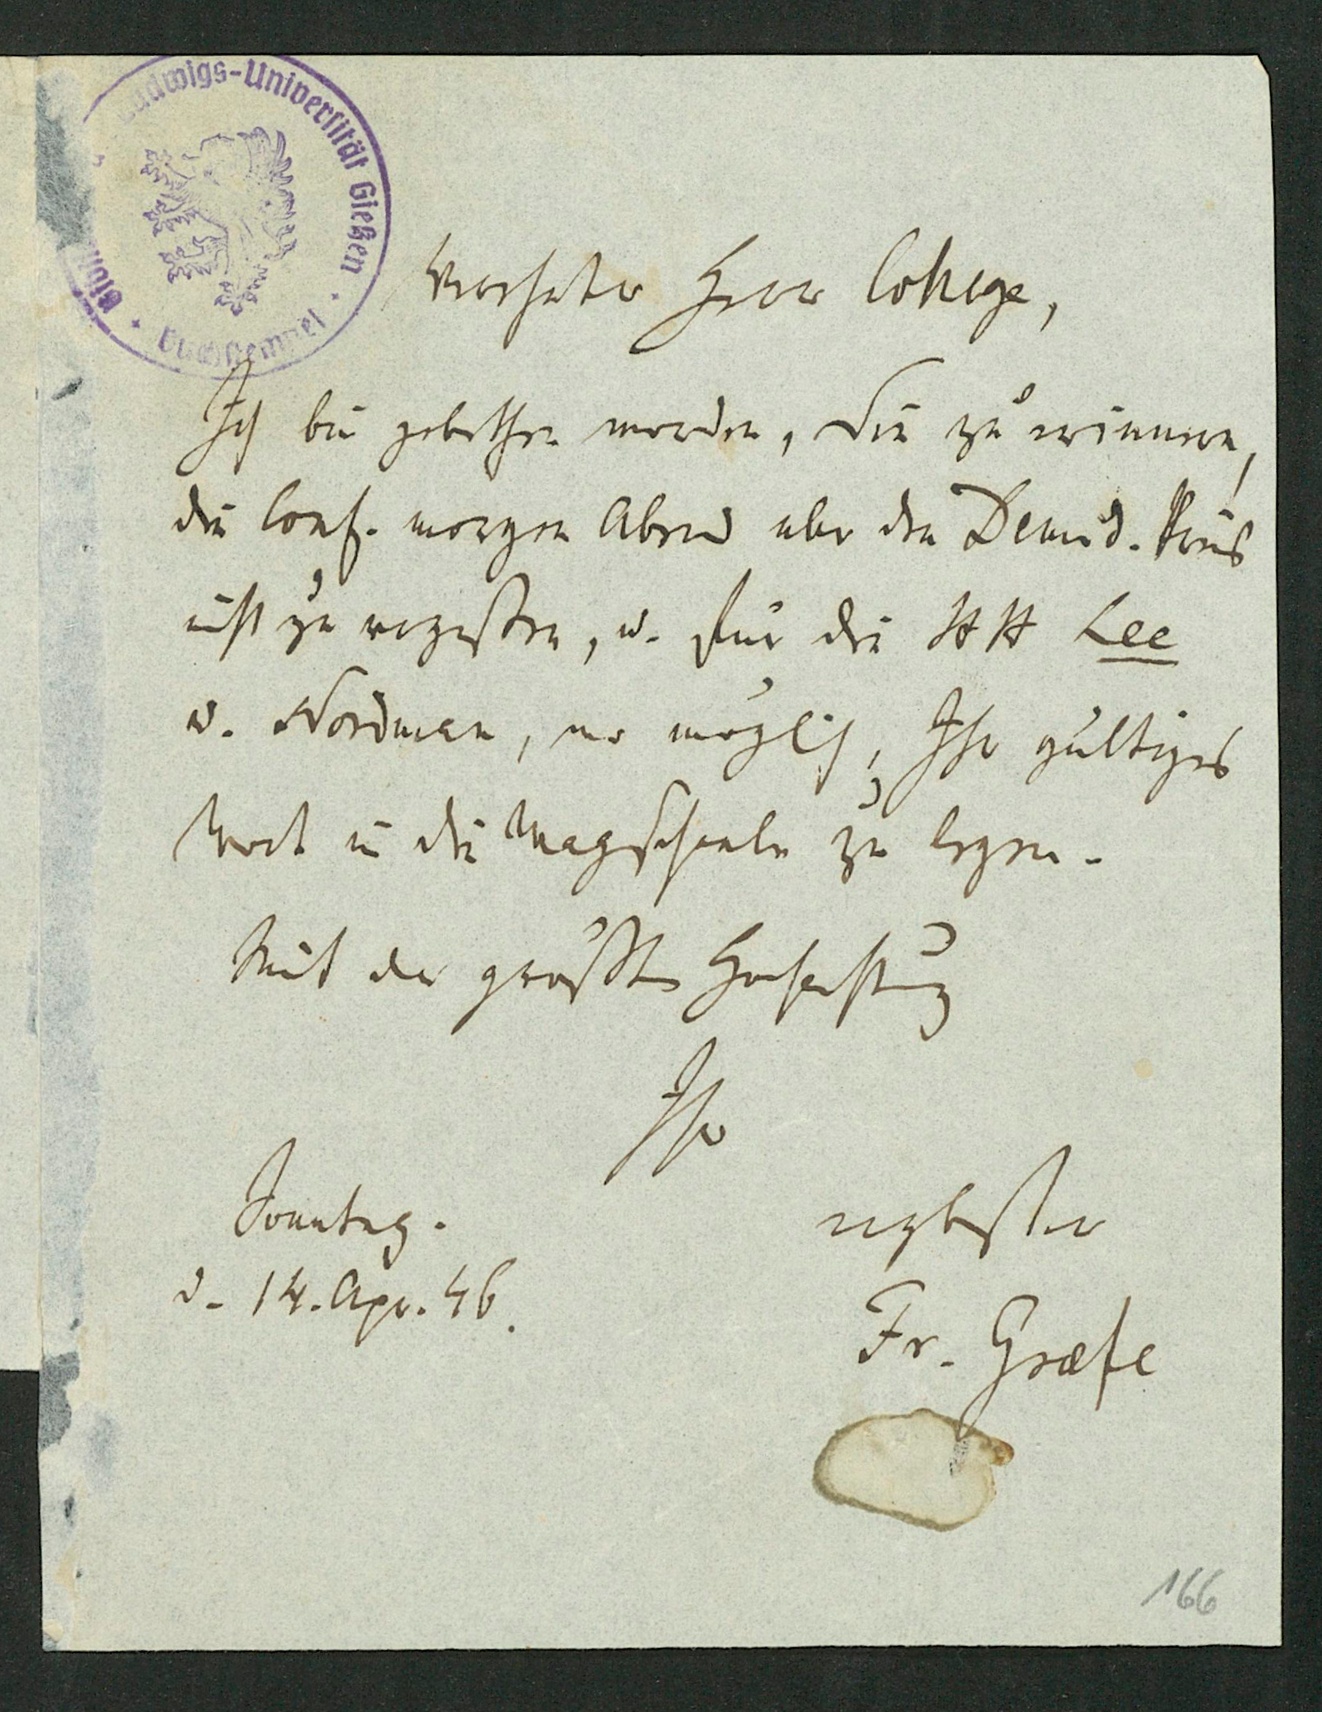 Ludwigs-Universität Gießen
Buchstempel
Verehrter Herr College,
Ich bin gebethen worden, Sie zu erinnern,
die Conf. morgen Abend über den Demid. Preis
nicht zu vergessen, u. für die HH Lee
u. Nordman, wo möglich, Ihr gültiges
Wort in die Wagschaale zu legen.
Mit der größten Hochachtung
Ihr
Sonntag.
ergebenster
d. 14. Apr. 46.
Fr. Græfe
166